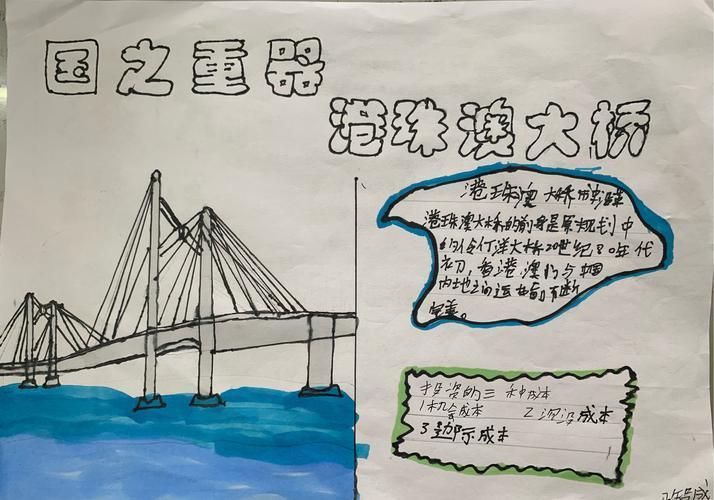 国之重器
港珠澳大桥
港珠澳大桥的
港珠澳大桥的前身是原规划中
的伶仃洋大桥20世纪80年代
初，香港、澳门与中国
内地之间运输不断
完善。
投资的三种成本
1机会成本 2沉没成本
3边际成本